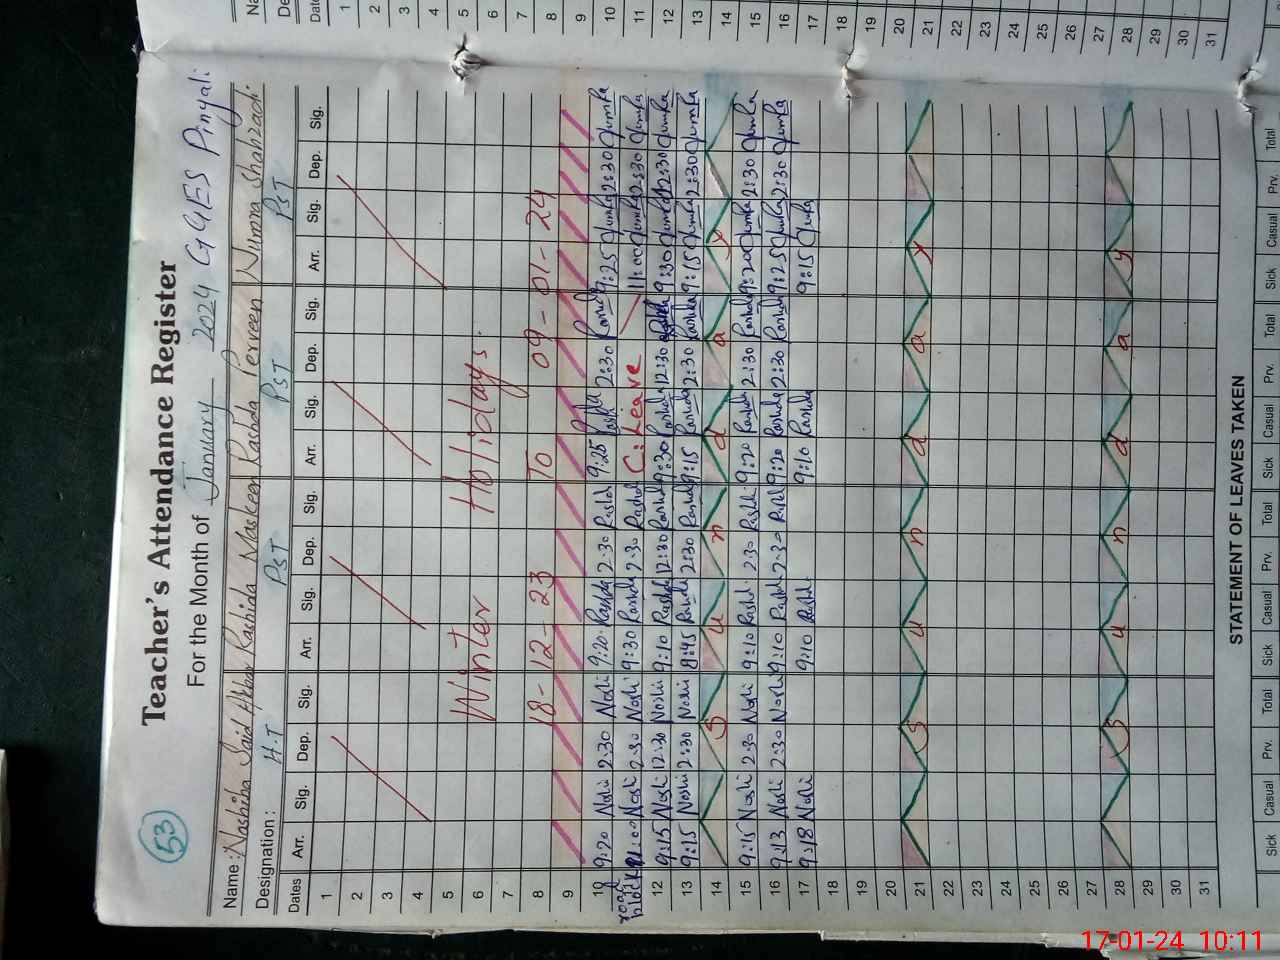 53
Teacher's Attendance Register
For the Month of January 2024 GGES Pinyali
Name: Nashiha Said Akbar Rashida Maskeen Rashda Perveen Numra Shahzadi
Designation: H.T PST PST PST
Dates Arr. Sig. Dep. Sig. Arr. Sig. Dep. Sig. Arr. Sig. Dep. Sig. Arr. Sig. Dep. Sig.
1
2
3
4
5
6 Winter Holidays
7
8 18-12-23 To 09-01-24
9
10 9:20 Noshi 2:30 Noshi 9:20 Rashda 2:30 Rashd 9:25 Rashda 2:30 Rashd 9:25 Jumka 2:30 Jumka
road block 11 11:00 Noshi 2:30 Noshi 9:30 Rashda 2:30 Rashd C. Leave 11:00 Jumka 2:30 Jumka
12 9:15 Noshi 12:30 Noshi 9:10 Rashd 12:30 Rashd 9:30 Rashda 12:30 Rashda 9:30 Jumka 12:30 Jumka
13 9:15 Noshi 2:30 Noshi 8:45 Rashd 2:30 Rashd 9:15 Rashda 2:30 Rashda 9:15 Jumka 2:30 Jumka
14 S u n d a y
15 9:15 Noshi 2:30 Noshi 9:10 Rashd 2:30 Rashd 9:20 Rashd 2:30 Rashda 9:20 Jumka 2:30 Jumka
16 9:13 Noshi 2:30 Noshi 9:10 Rashd 2:30 Rashd 9:20 Rashda 2:30 Rashda 9:25 Jumka 2:30 Jumka
17 9:18 Noshi 9:10 Rashd 9:10 Rashda 9:15 Jumka
18
19
20
21 S u n d a y
22
23
24
25
26
27
28 S u n d a y
29
30
31
STATEMENT OF LEAVES TAKEN
Sick Casual Prv. Total Sick Casual Prv. Total Sick Casual Prv. Total Sick Casual Prv. Total
1
2
3
4
5
6
7
8
9
10
11
12
13
14
15
16
17
18
19
20
21
22
23
24
25
26
27
28
29
30
31
17-01-24 10:11